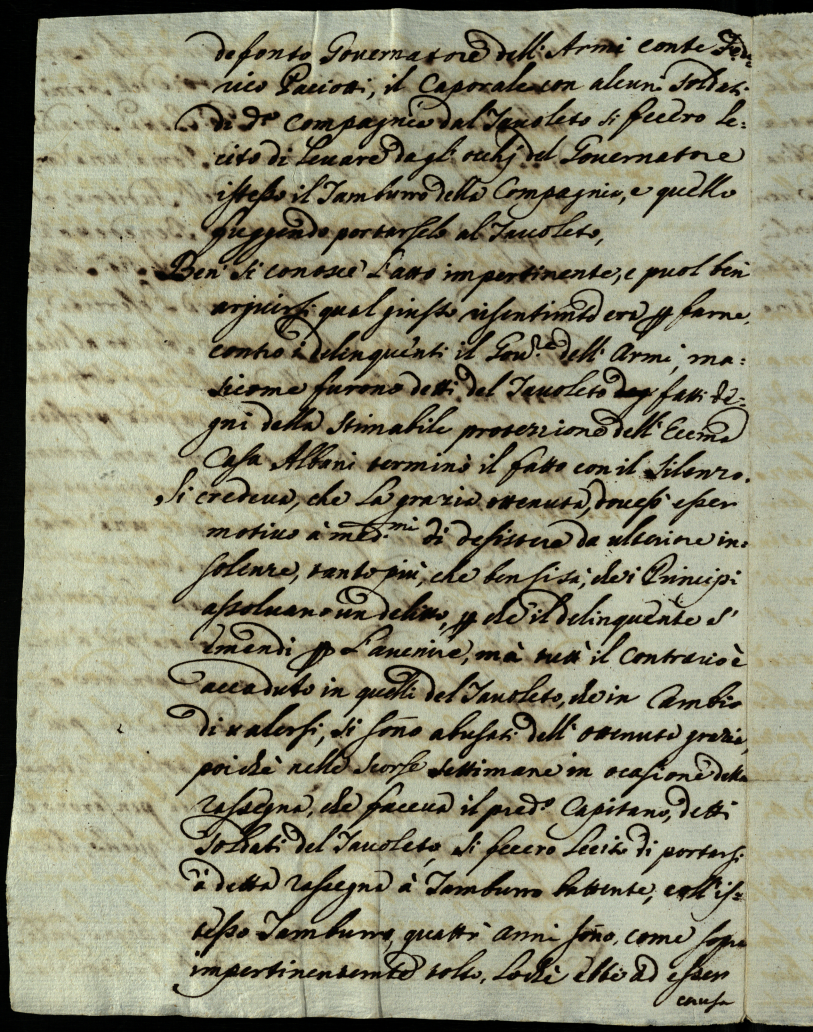 defonto Governatore dell'Armi Conte Fede=
rico Paciotti, il Caporale con alcuni Soldati
di d.ª Compagnia dal Tavoleto si fecero le=
cito di levare dagl'occhj del Governatore
istesso il Tamburro della Compagnia, e quello
fuggendo portarselo al Tavoleto,
Ben si conosce l'atto impertinente, e puol ben
arguirsi qual giusto risentim.to era p farne
contro i delinquenti il Gov.re dell'Armi, ma=
sicome furono detti del Tavoleto fatti de=
gni della stimabile protezzione dell'Ecc.ma
Casa Albani terminò il fatto con il Silenzo.
Si credeva, che la grazia ottenuta, dovesse esser
motivo à med.mi di desistere da ulteriore in=
solenze, tanto più, che ben si sà, che i Principi
assolvano un delitto, p che il delinquente s'
emendi p l'avenire, mà tutt'il contrario è
accaduto in quelli del Tavoleto, che in Cambio
di valersi, si sono abusati dell'ottenuta grazia,
poiche nelle scorse settimane in ocasione della
rassegna, che faceva il pred.º Capitano, detti
Soldati del Tavoleto, si fecero lecito di portarsi
à detta rassegna à Tamburro battente, coll'is=
tesso Tamburro, quattr'anni sono, come sopra
impertinentem.te tolto, loche ebbe ad esser
causa